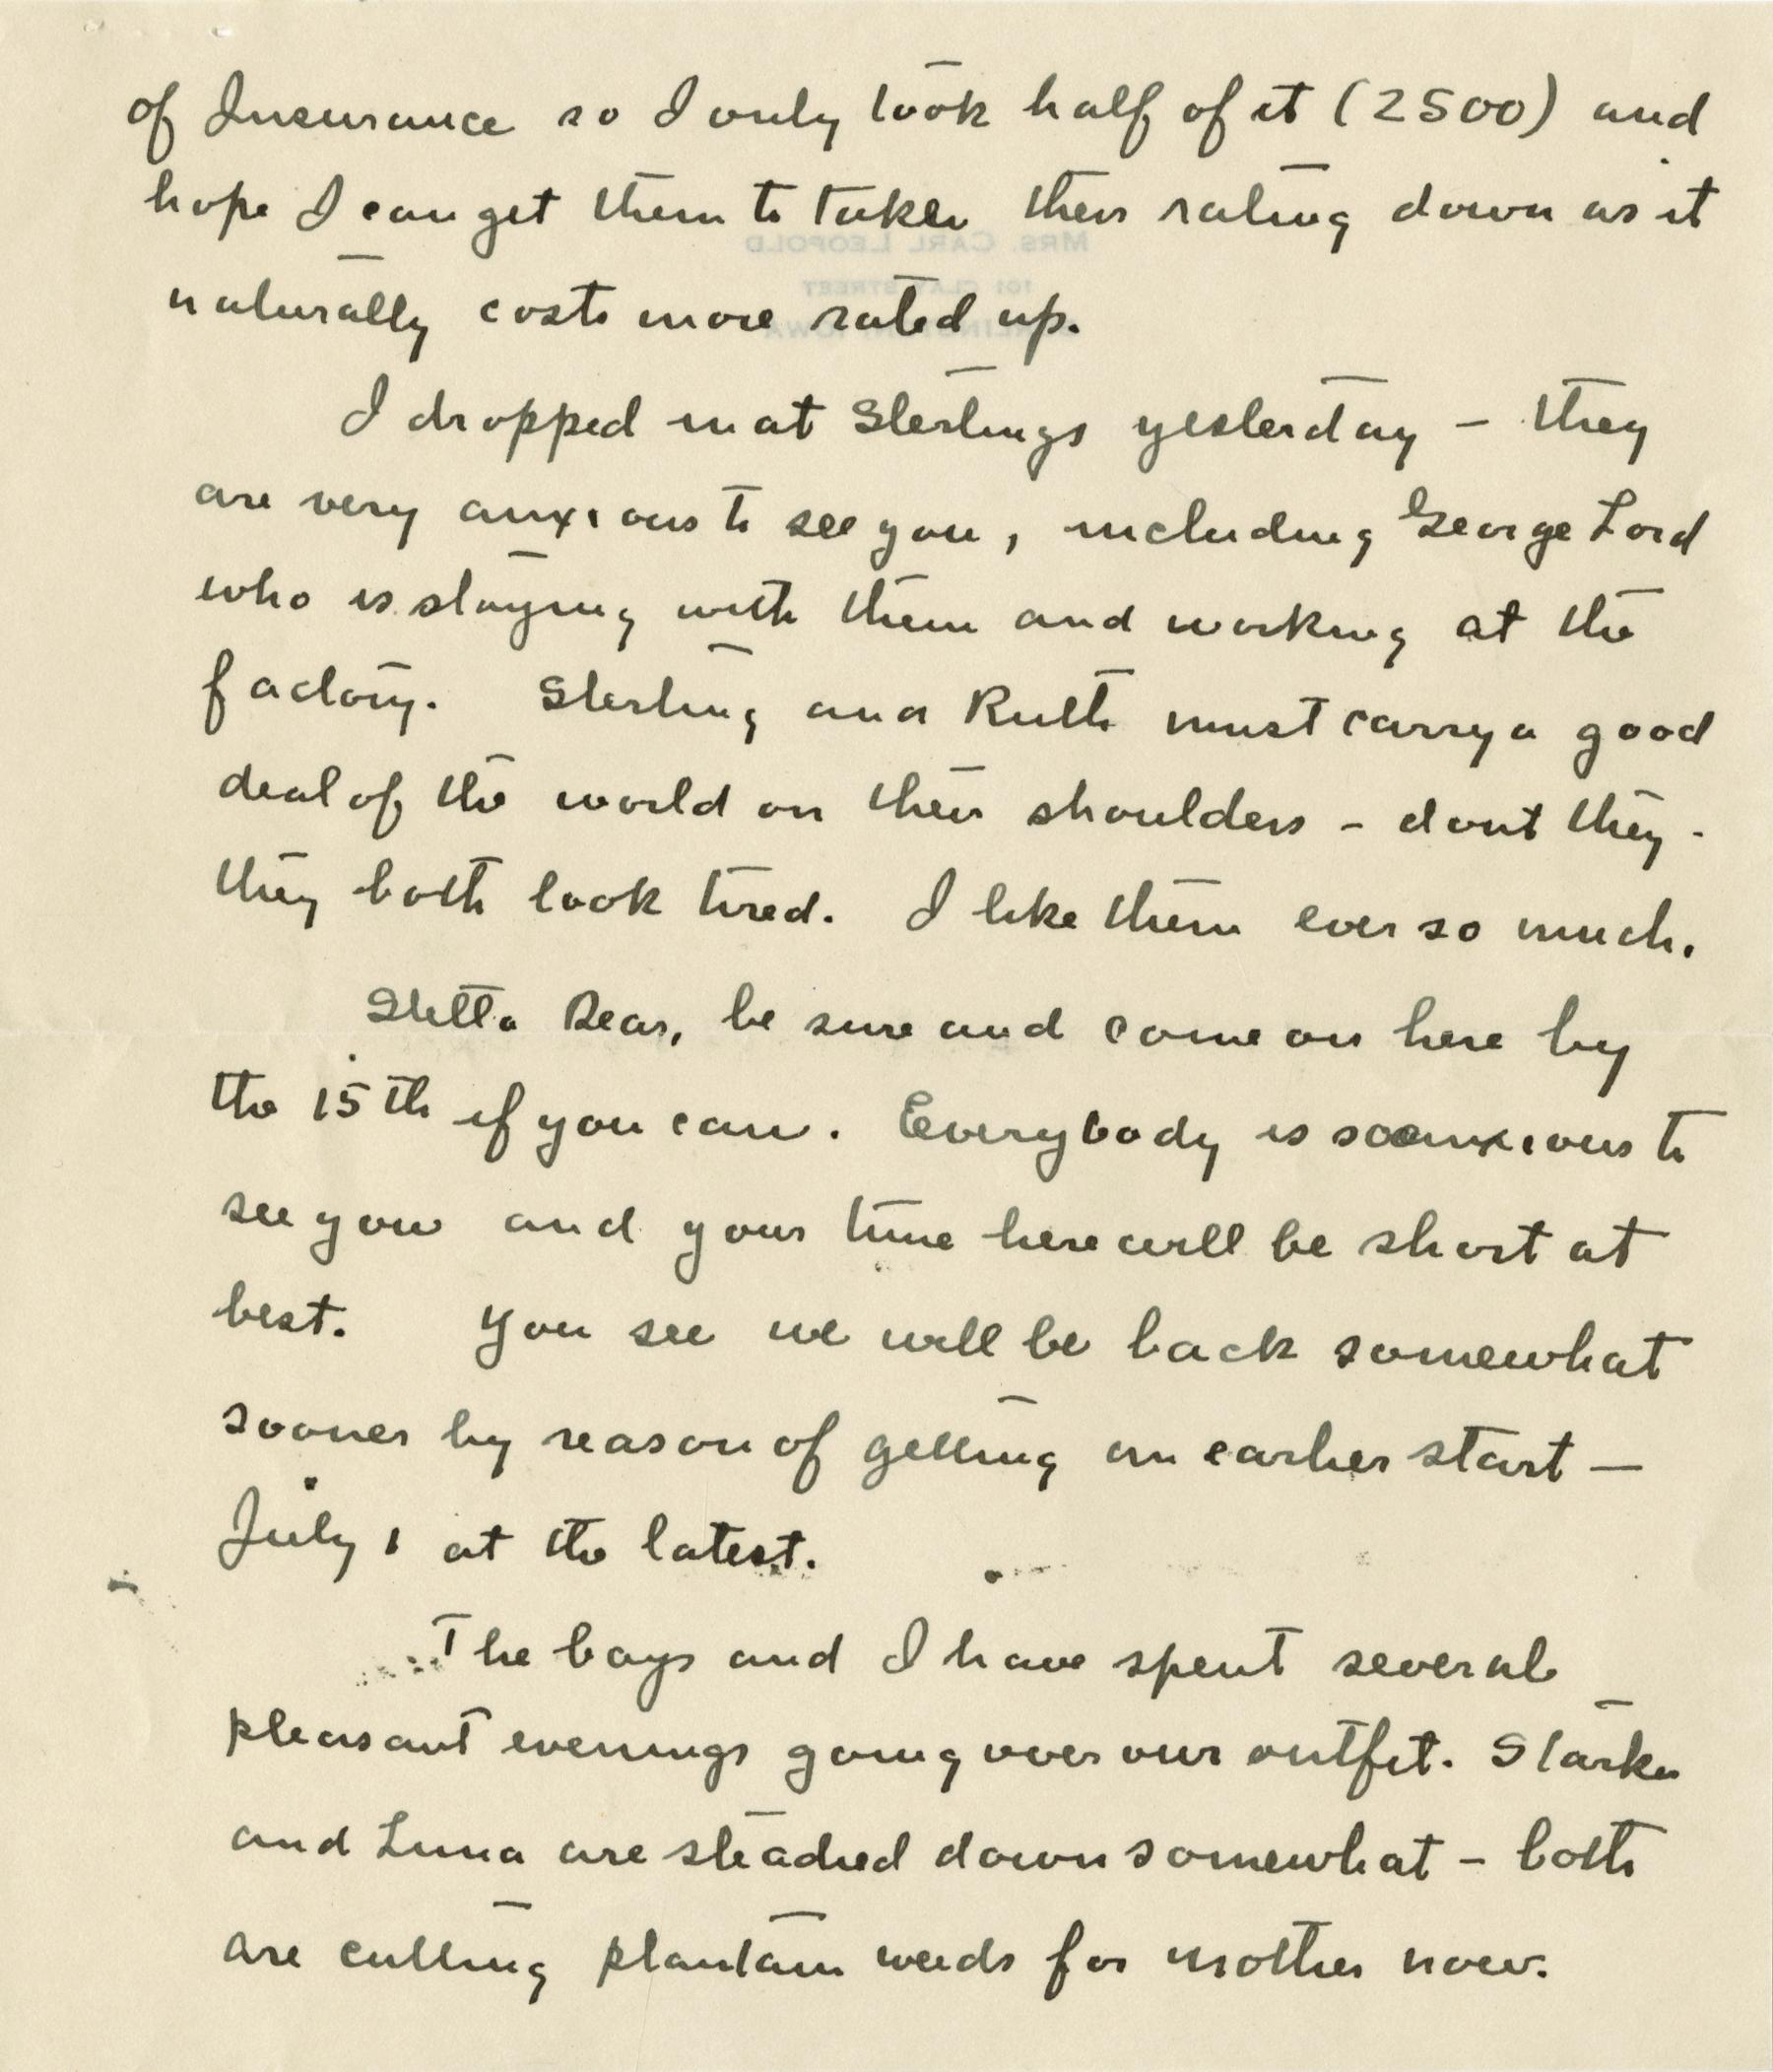 of Insurance so I only took half of it (2500) and
hope I can get them to take their rating down as it
naturally costs more rated up.
I dropped in at Sterlings yesterday – they
are very anxious to see you, including George Lord
who is staying with them and working at the
factory. Sterling and Ruth must carry a good
deal of the world on their shoulders – dont they -
they both look tired. I like them ever so much.
Stella Dear, be sure and come on here by
the 15th if you can. Everybody is so anxious to
see you and your time here will be short at
best. You see we will be back somewhat
sooner by reason of getting an earlier start –
July 1 at the latest.
The boys and I have spent several
pleasant evenings going over our outfit. Starker
and Luna are steadied down somewhat – both
are cutting plantain weeds for mother now.
MRS. CARL LEOPOLD
101 CLAY STREET
IOWA